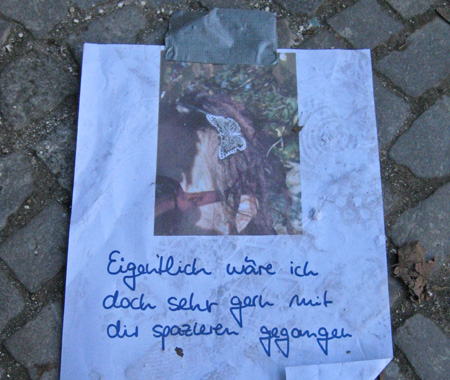 Eigentlich wäre ich
doch sehr gern mit
dir spazieren gegangen